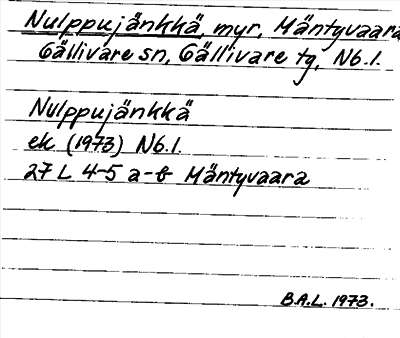 Nulppujänkkä, myr, Mäntyvaara
Gällivare sn, Gällivare tg, Nb.l.
Nulppujänkkä
ek (1973) Nb.l.
27 L 4-5 a-b Mäntyvaara
B.A.L. 1973.